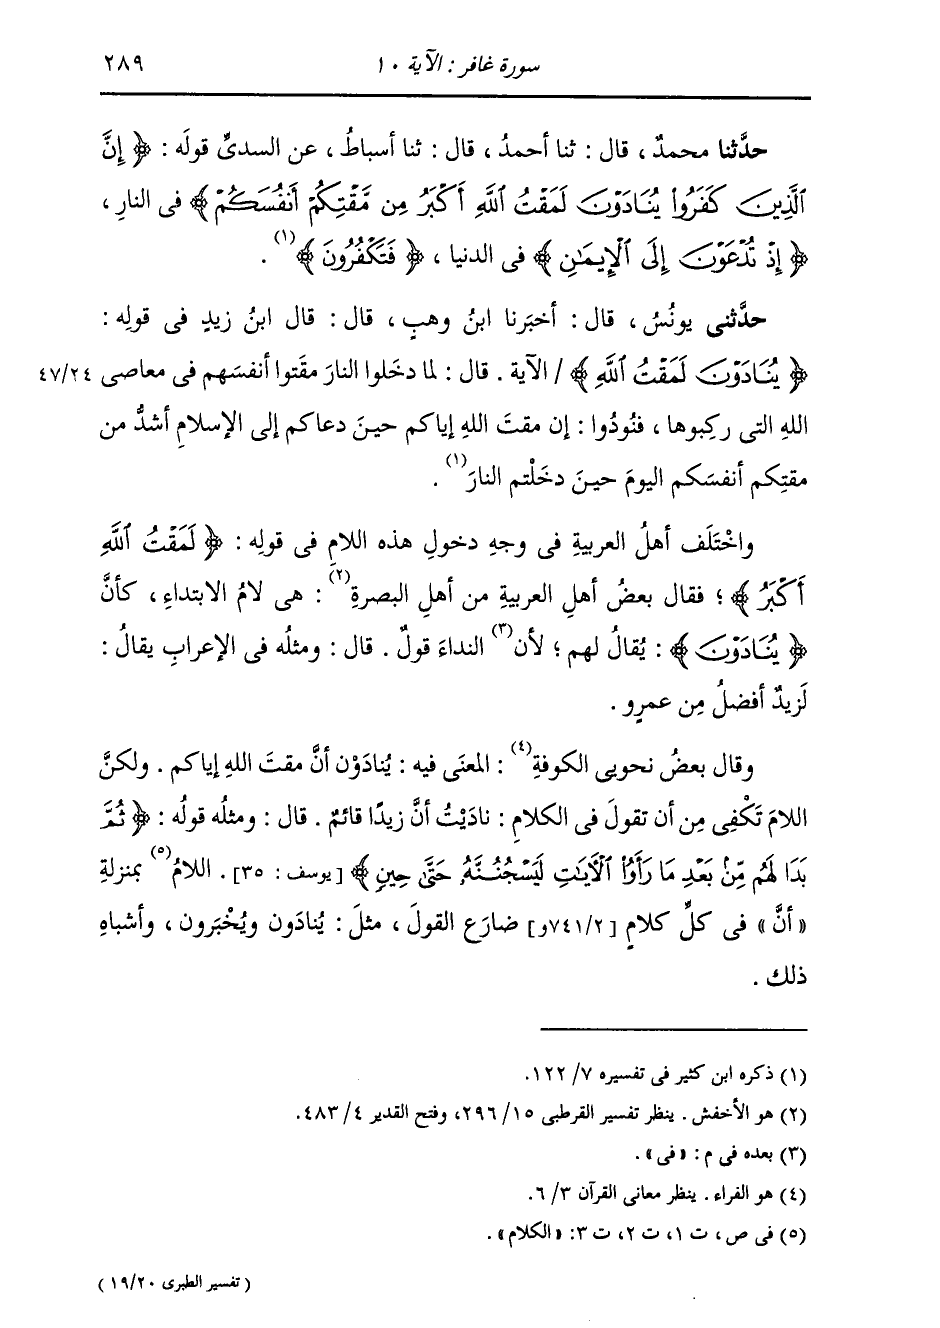 سورة غافر : الآية ١٠
٢٨٩
حدَّثنا محمدٌ ، قال : ثنا أحمدُ ، قال : ثنا أسباطُ ، عن السدىِّ قولَه : ﴿ إِنَّ
ٱلَّذِينَ كَفَرُوا۟ يُنَادَوْنَ لَمَقْتُ ٱللَّهِ أَكْبَرُ مِن مَّقْتِكُمْ أَنفُسَكُمْ ﴾ فى النارِ ،
﴿ إِذْ تُدْعَوْنَ إِلَى ٱلْإِيمَٰنِ ﴾ فى الدنيا ، ﴿ فَتَكْفُرُونَ ﴾(١) .
حدَّثنى يونُسُ ، قال : أخبَرنا ابنُ وهبٍ ، قال : قال ابنُ زيدٍ فى قولِه :
﴿ يُنَادَوْنَ لَمَقْتُ ٱللَّهِ ﴾ / الآية . قال : لما دخَلوا النارَ مقَتوا أنفسَهم فى معاصى ٤٧/٢٤
اللهِ التى ركِبوها ، فنُودُوا : إن مقتَ اللهِ إياكم حينَ دعاكم إلى الإسلامِ أشدُّ من
مقتِكم أنفسَكم اليومَ حينَ دخَلْتم النارَ(١) .
واخْتَلَف أهلُ العربيةِ فى وجهِ دخولِ هذه اللامِ فى قولِه : ﴿ لَمَقْتُ ٱللَّهِ
أَكْبَرُ ﴾ ؛ فقال بعضُ أهلِ العربيةِ من أهلِ البصرةِ(٢) : هى لامُ الابتداءِ ، كأنَّ
﴿ يُنَادَوْنَ ﴾ : يُقالُ لهم ؛ لأن(٣) النداءَ قولٌ . قال : ومثلُه فى الإعرابِ يقالُ :
لَزيدٌ أفضلُ مِن عمرٍو .
وقال بعضُ نحويى الكوفةِ(٤) : المعنَى فيه : يُنادَوْن أنَّ مقتَ اللهِ إياكم . ولكنَّ
اللامَ تَكْفِى مِن أن تقولَ فى الكلامِ : نادَيْتُ أنَّ زيدًا قائمٌ . قال : ومثلُه قولُه : ﴿ ثُمَّ
بَدَا لَهُم مِّنۢ بَعْدِ مَا رَأَوُا۟ ٱلْآيَٰتِ لَيَسْجُنُنَّهُۥ حَتَّىٰ حِينٍ ﴾ [ يوسف : ٣٥] . اللامُ(٥) بمنزلةِ
« أنَّ » فى كلِّ كلامٍ [ ٧٤١/٢و] ضارَع القولَ ، مثلَ : يُنادَون ويُخْبَرون ، وأشباهِ
ذلك .
(١) ذكره ابن كثير فى تفسيره ٧/ ١٢٢.
(٢) هو الأخفش . ينظر تفسير القرطبى ١٥/ ٢٩٦، وفتح القدير ٤/ ٤٨٣.
(٣) بعده فى م : « فى » .
(٤) هو الفراء . ينظر معانى القرآن ٣/ ٦.
(٥) فى ص ، ت ١، ت ٢، ت ٣: « الكلام » .
( تفسير الطبرى ١٩/٢٠ )